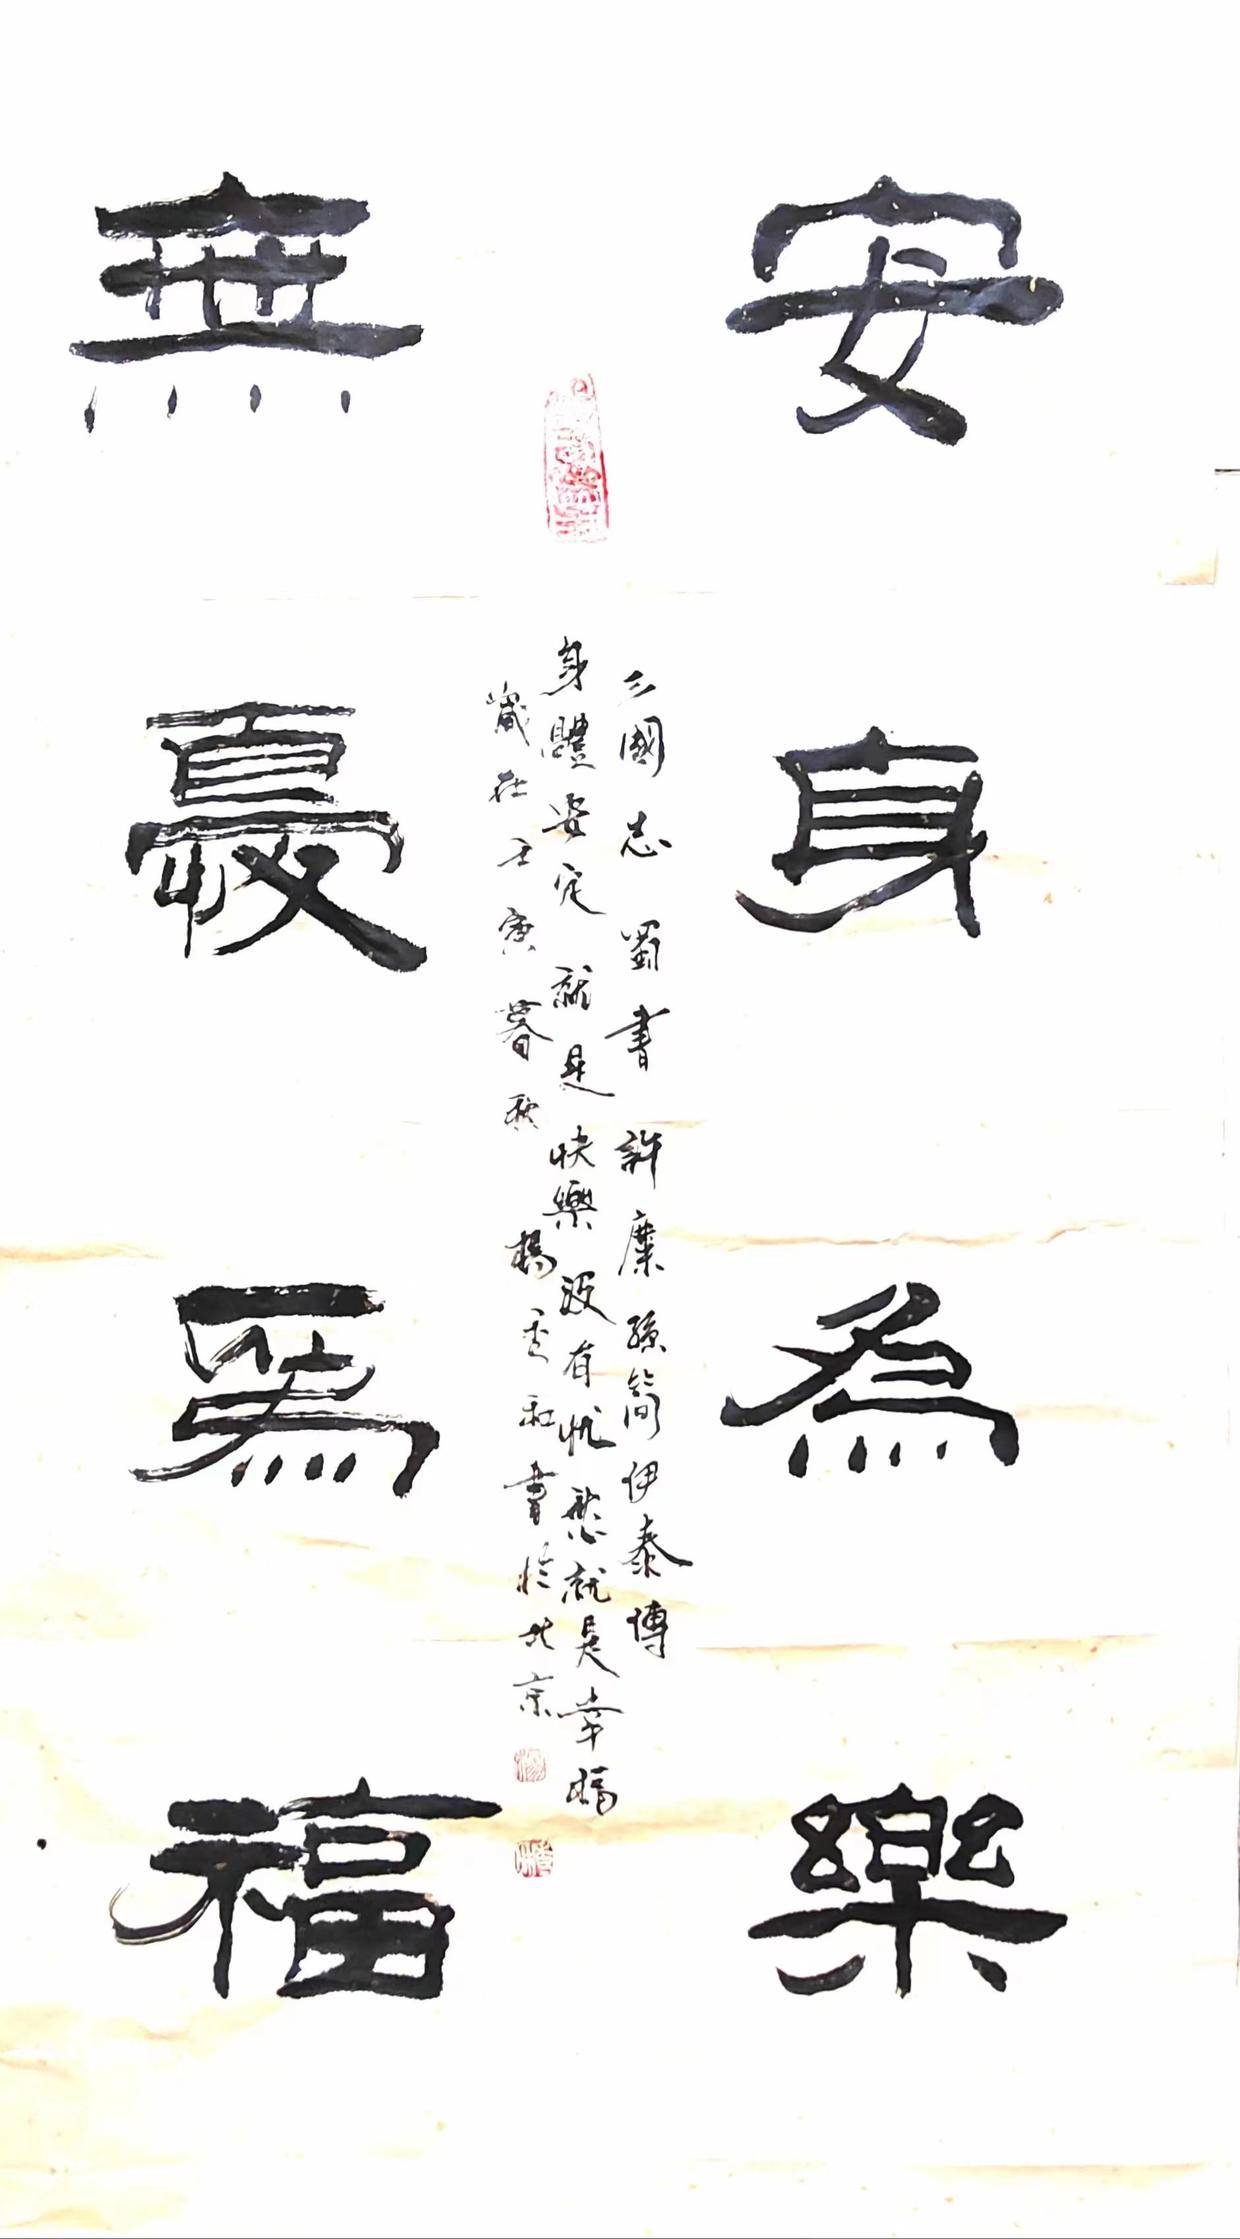 安身為樂
無憂為福
三國志蜀書許糜孫簡伊秦傳
身體安定就是快樂没有忧愁就是幸福
歲在壬寅暮秋楊香和書於北京